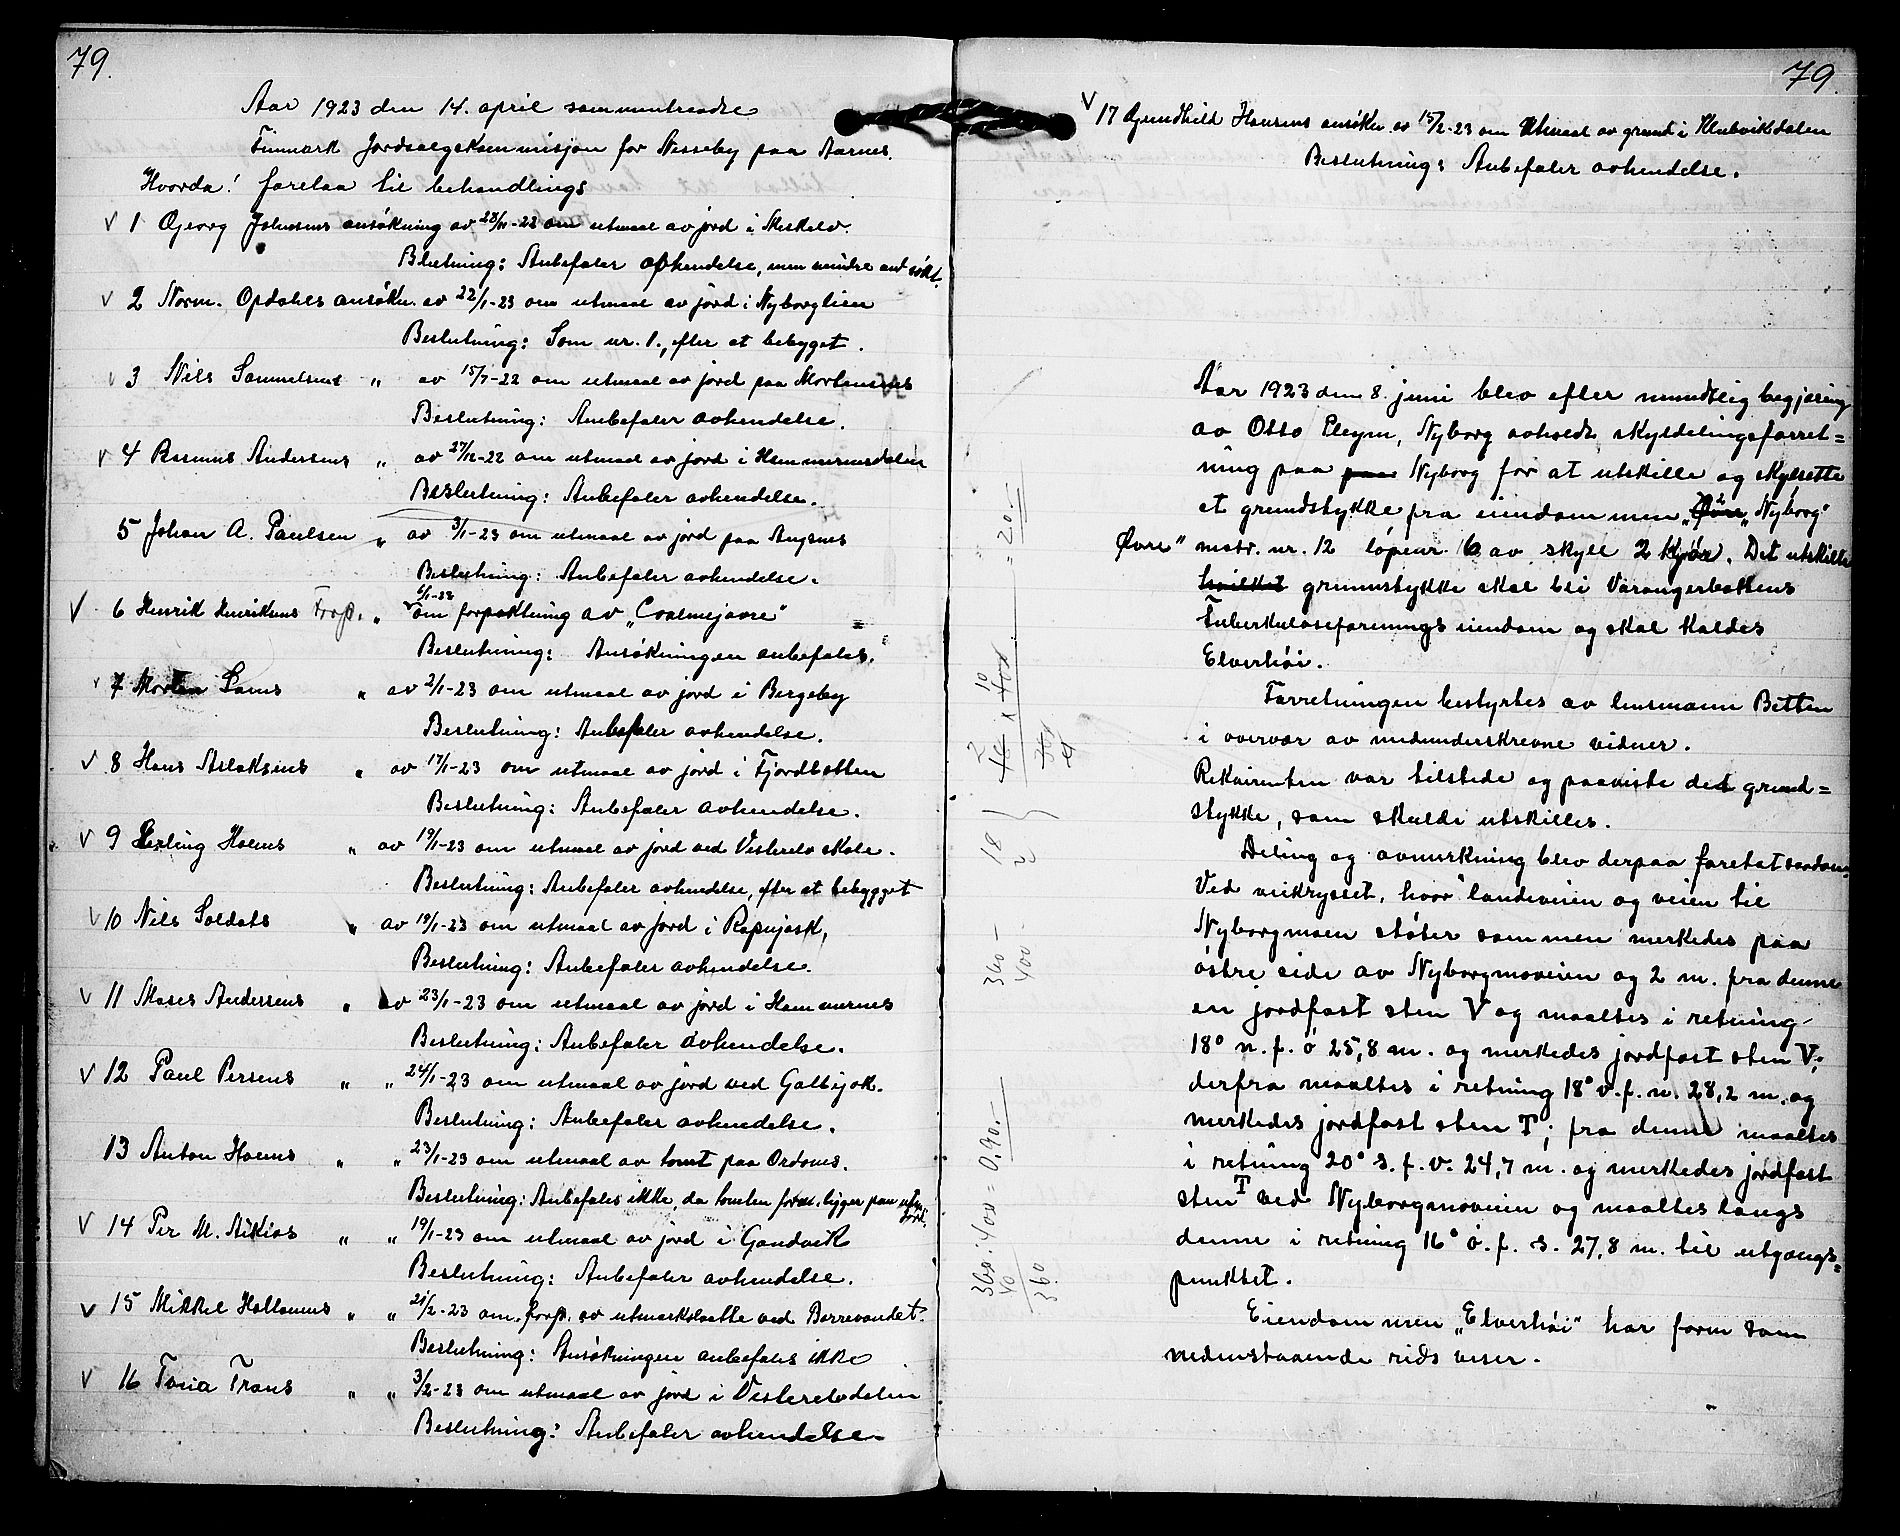 79.
Aar 1923 den 14. april sammentraadte
Finmark Jordsalgskommisjon for Nesseby paa Aarnes.
Hvorda! forelaa til behandlings
V 1 Georg Johnsens ansökning av 23/11-22 om utmaal av jord i Meskelv.
Blutning: Anbefaler avhendelse, men mindre end sökt.
V 2 Norm. Opdahls ansökn. av 22/1-23 om utmaal av jord i Nyborglien
Beslutning: Som nr. 1., efter at bebyget.
V 3 Nils Samuelsens " av 15/7-22 om utmaal av jord paa Mortensnes
Beslutning: Anbefaler avhendelse.
V 4 Rasmus Andersens " av 27/12-22 om utmaal av jord i Hammernesdalen
Beslutning: Anbefaler avhendelse.
5 Johan A. Paulsen " av 3/1-23 om utmaal av jord paa Angsnes
Beslutning: Anbefaler avhendelse.
6/1-23
V 6 Henrik Henriksens Forp. " om forpaktning av "Coalmejavre"
Beslutning: Ansökningen anbefales.
V 7 Morten Sams " av 2/1-23 om utmaal av jord i Bergeby
Beslutning: Anbefaler avhendelse.
V 8 Hans Aslaksens " av 17/1-23 om utmaal av jord i Fjordbotten
Beslutning: Anbefaler avhendelse.
V 9 Erling Holms " av 19/1-23 om utmaal av jord ved Vesterelv skole.
Beslutning: Anbefaler avhendelse, efter at bebygget
V 10 Nils Soldats " av 19/1-23 om utmaal av jord i Rapujask,
Beslutning: Anbefaler avhendelse.
V 11 Moses Andersens " av 23/1-23 om utmaal av jord i Hammernes
Beslutning: Anbefaler avhendelse.
V 12 Paul Persens " " 24/1-23 om utmaal av jord ved Galbijok.
Beslutning: Anbefaler avhendelse.
13 Anton Holms " " 23/1-23 om utmaal av tomt paa Ordones.
Beslutning: Anbefales ikke, da tomten form. ligger paa utm.
jord.
V 14 Per M. Aikios " " 19/1-23 om utmaal av jord i Gandvik
Beslutning: Anbefaler avhendelse.
V 15 Mikkel Hallonens " " 21/2-23 om forp. av utmarkslaatte ved Barrevandet.
Beslutning: Ansökningen anbefales ikke
V 16 Tona Trans " " 3/2-23 om utmaal av jord i Vesterelvdalen
Beslutning: Anbefaler avhendelse.
79.
V 17 Gundhild Hansens ansökn av 15/2-23 om utmaal av grund i Klubvikdalen
Beslutning: Anbefaler avhendelse.
Aar 1923 den 8. juni blev efter mundtlig begjæring
av Otto Pleym, Nyborg avholdt skyldelingsforret=
ning paa paa Nyborg for at utskille og skylsette
et grundstykke fra eiendommen "Övre" Nyborg"
Övre" matr. nr. 12 löpenr. 6 av skyll 2 kjör. Det utskilte
hvilket grunnstykke skal bli Varangerbottens
Tuberkuloseforenings eiendom og skal kaldes
Elverhöi.
Forretningen bestyrtes av lensmann Betten
i overvær av medunderskrevne vidner.
Rekvirenten var tilstede og paaviste det grund=
stykke, som skulde utskilles.
Deling og avmerkning blev derpaa foretat saadan:
Ved veikrysset, hvor landeveien og veien til
Nyborgmoen stöter sammen merkedes paa
östre side av Nyborgmoveien og 2 m. fra denne
en jordfast sten V og maaltes i retning
18° n. f. ö 25,8 m. og merkedes jordfast sten V;
derfra maaltes i retning 18° v. f. n. 28,2 m. og
merkedes jordfast sten T; fra denne maaltes
i retning 20° s. f. v. 24,7 m. og merkedes jordfast
sten T ved Nyborgmoveien og maaltes langs
denne i retning 16° ö. f. s. 27,8 m. til utgangs=
punktet.
Eiendommen "Elverhöi" har form som
nedenstaaende rids viser.
360:400 = 0,90.-
360
360 -
400 -
18
= 20.-